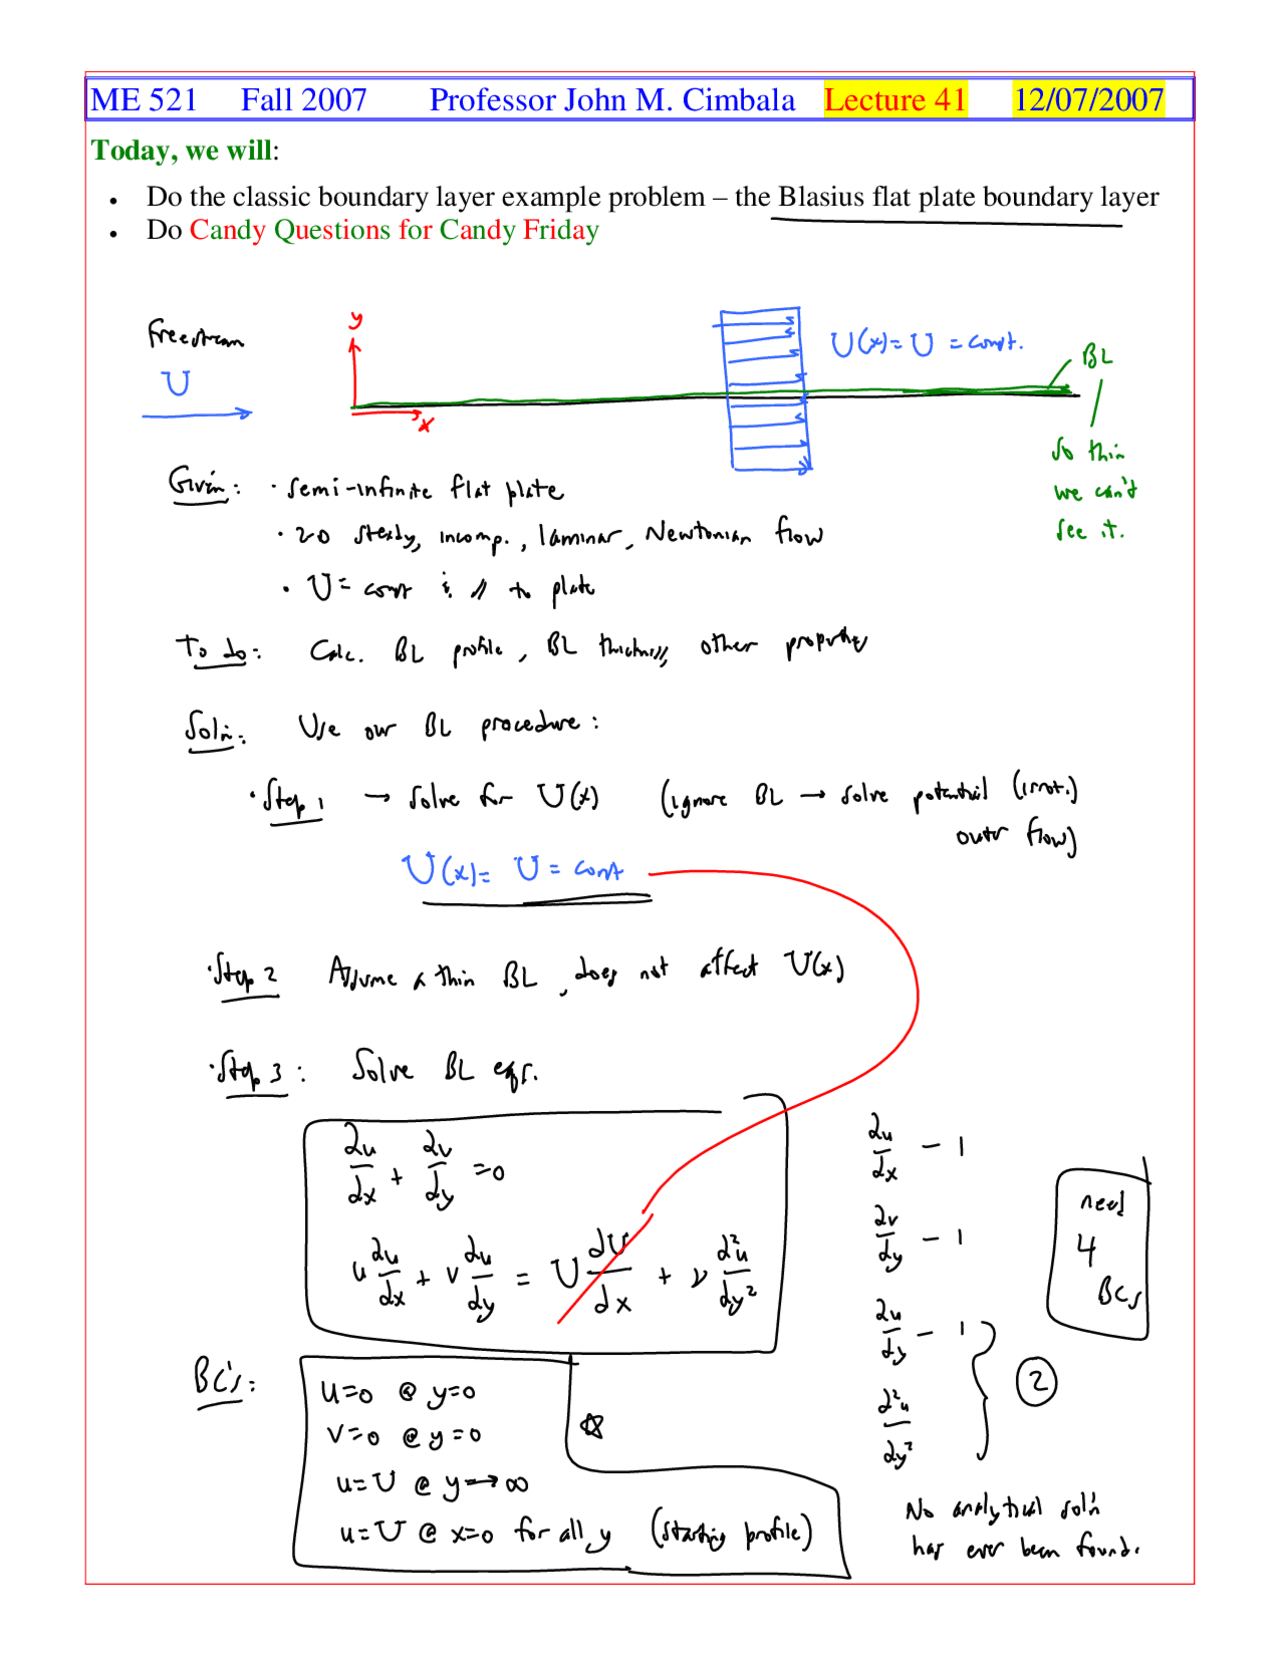 ME 521 Fall 2007 Professor John M. Cimbala Lecture 41 12/07/2007
Today, we will:
• Do the classic boundary layer example problem – the Blasius flat plate boundary layer
• Do Candy Questions for Candy Friday
Freestream
U
y
x
U(x) = U = const.
BL
so thin
we can't
see it.
Given: · semi-infinite flat plate
· 2D steady, incomp., laminar, Newtonian flow
· U = const & // to plate
To do: Calc. BL profile, BL thickness, other properties
Sol'n: Use our BL procedure:
· Step 1 → solve for U(x) (ignore BL → solve potential (irrot.)
outer flow)
U(x) = U = const
· Step 2 Assume a thin BL, does not affect U(x)
· Step 3: Solve BL eqs.
∂u/∂x + ∂v/∂y = 0
u ∂u/∂x + v ∂u/∂y = U dU/dx + ν ∂²u/∂y²
∂u/∂x – 1
∂v/∂y – 1
∂u/∂y – 1
∂²u/∂y²
2
need
4
BCs
BC's:
u=0 @ y=0
v=0 @ y=0
u=U @ y→∞
u=U @ x=0 for all y (starting profile)
No analytical sol'n
has ever been found.